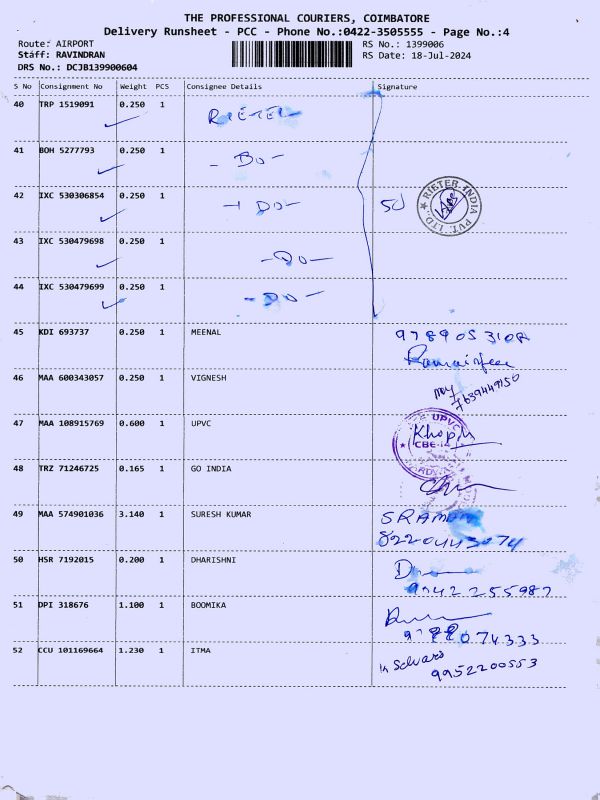 THE PROFESSIONAL COURIERS, COIMBATORE
Delivery Runsheet - PCC - Phone No.:0422-3505555 - Page No.:4
Route: AIRPORT RS No.: 1399006
Staff: RAVINDRAN RS Date: 18-Jul-2024
DRS No.: DCJB139900604
S No Consignment No Weight PCS Consignee Details Signature
40 TRP 1519091 0.250 1 RIETER
41 BOH 5277793 0.250 1 - DO -
42 IXC 530306854 0.250 1 - DO - RIETER INDIA PVT. LTD.
43 IXC 530479698 0.250 1 - DO -
44 IXC 530479699 0.250 1 - DO -
45 KDI 693737 0.250 1 MEENAL
46 MAA 600343057 0.250 1 VIGNESH
47 MAA 108915769 0.600 1 UPVC UPVC CBE
48 TRZ 71246725 0.165 1 GO INDIA
49 MAA 574901036 3.140 1 SURESH KUMAR
50 HSR 7192015 0.200 1 DHARISHNI
9942255987
51 DPI 318676 1.100 1 BOOMIKA
52 CCU 101169664 1.230 1 ITMA
9952200553